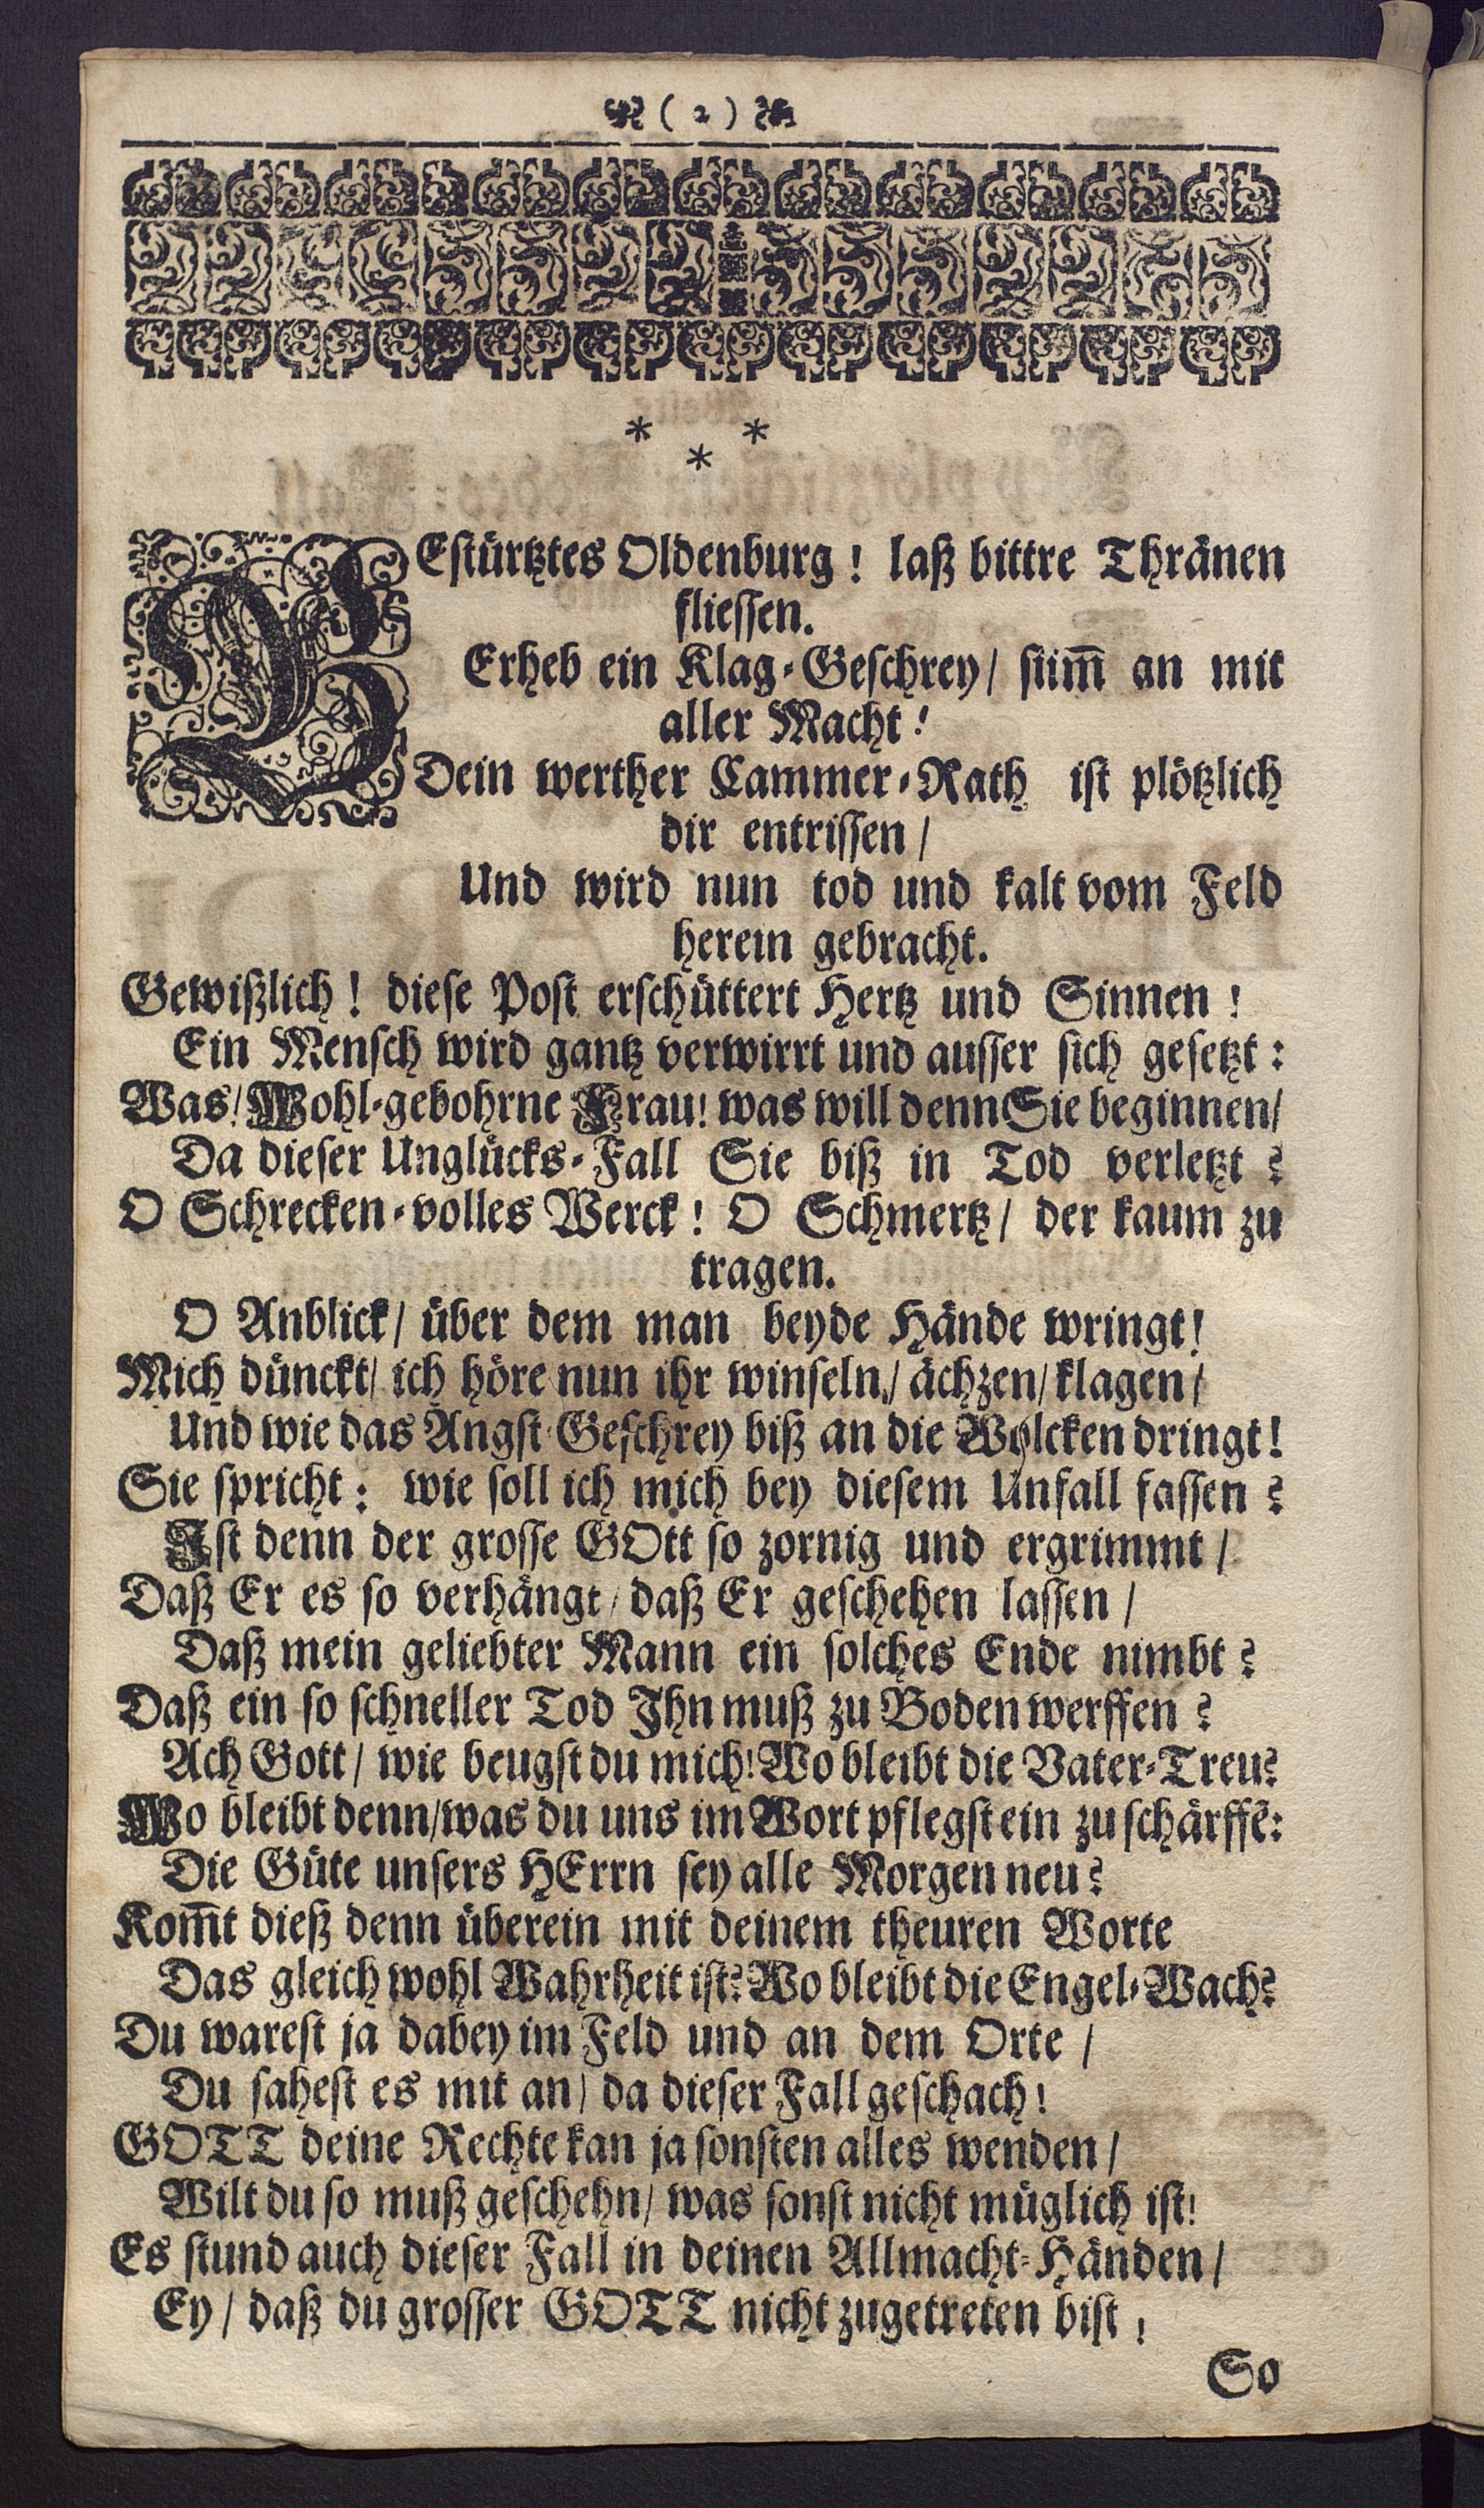 ( 2 )
* *
*
BEstürtztes Oldenburg! laß bittre Thränen
fliessen.
Erheb ein Klag-Geschrey/ stim̃ an mit
aller Macht!
Dein werther Cammer-Rath ist plötzlich
dir entrissen/
Und wird nun tod und kalt vom Feld
herein gebracht.
Gewißlich! diese Post erschüttert Hertz und Sinnen!
Ein Mensch wird gantz verwirrt und ausser sich gesetzt:
Was/ Wohl-gebohrne Frau! was will denn Sie beginnen/
Da dieser Unglücks-Fall Sie biß in Tod verletzt?
O Schrecken-volles Werck! O Schmertz/ der kaum zu
tragen.
O Anblick/ über dem man beyde Hände wringt!
Mich dünckt/ ich höre nun ihr winseln/ ächzen/ klagen/
Und wie das Angst-Geschrey biß an die Wolcken dringt!
Sie spricht: wie soll ich mich bey diesem Unfall fassen?
Ist denn der grosse GOtt so zornig und ergrimmt/
Daß Er es so verhängt/ daß Er geschehen lassen/
Daß mein geliebter Mann ein solches Ende nimbt?
Daß ein so schneller Tod Ihn muß zu Boden werffen?
Ach Gott/ wie beugst du mich! Wo bleibt die Vater-Treu?
Wo bleibt denn/ was du uns im Wort pflegst ein zu schärffẽ:
Die Güte unsers HErrn sey alle Morgen neu?
Kom̃t dieß denn überein mit deinem theuren Worte
Das gleich wohl Wahrheit ist? Wo bleibt die Engel-Wach?
Du warest ja dabey im Feld und an dem Orte/
Du sahest es mit an/ da dieser Fall geschach!
GOTT deine Rechte kan ja sonsten alles wenden/
Wilt du so muß geschehn/ was sonst nicht müglich ist!
Es stund auch dieser Fall in deinen Allmacht-Händen/
Ey/ daß du grosser GOTT nicht zugetreten bist!
So